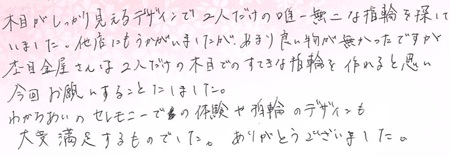 木目がしっかり見えるデザインで2人だけの唯一無二な指輪を探して
いました。他店にもうかがいましたが、あまり良い物が無かったですが
杢目金屋さんは2人だけの木目でのすてきな指輪を作れると思い
今回お願いすることにしました。
わかちあいのセレモニーでの体験や指輪のデザインも
大変満足するものでした。ありがとうございました。